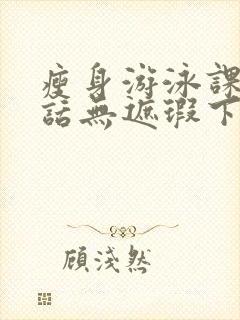 瘦身游泳課
話無遮瑕下
顧淺然